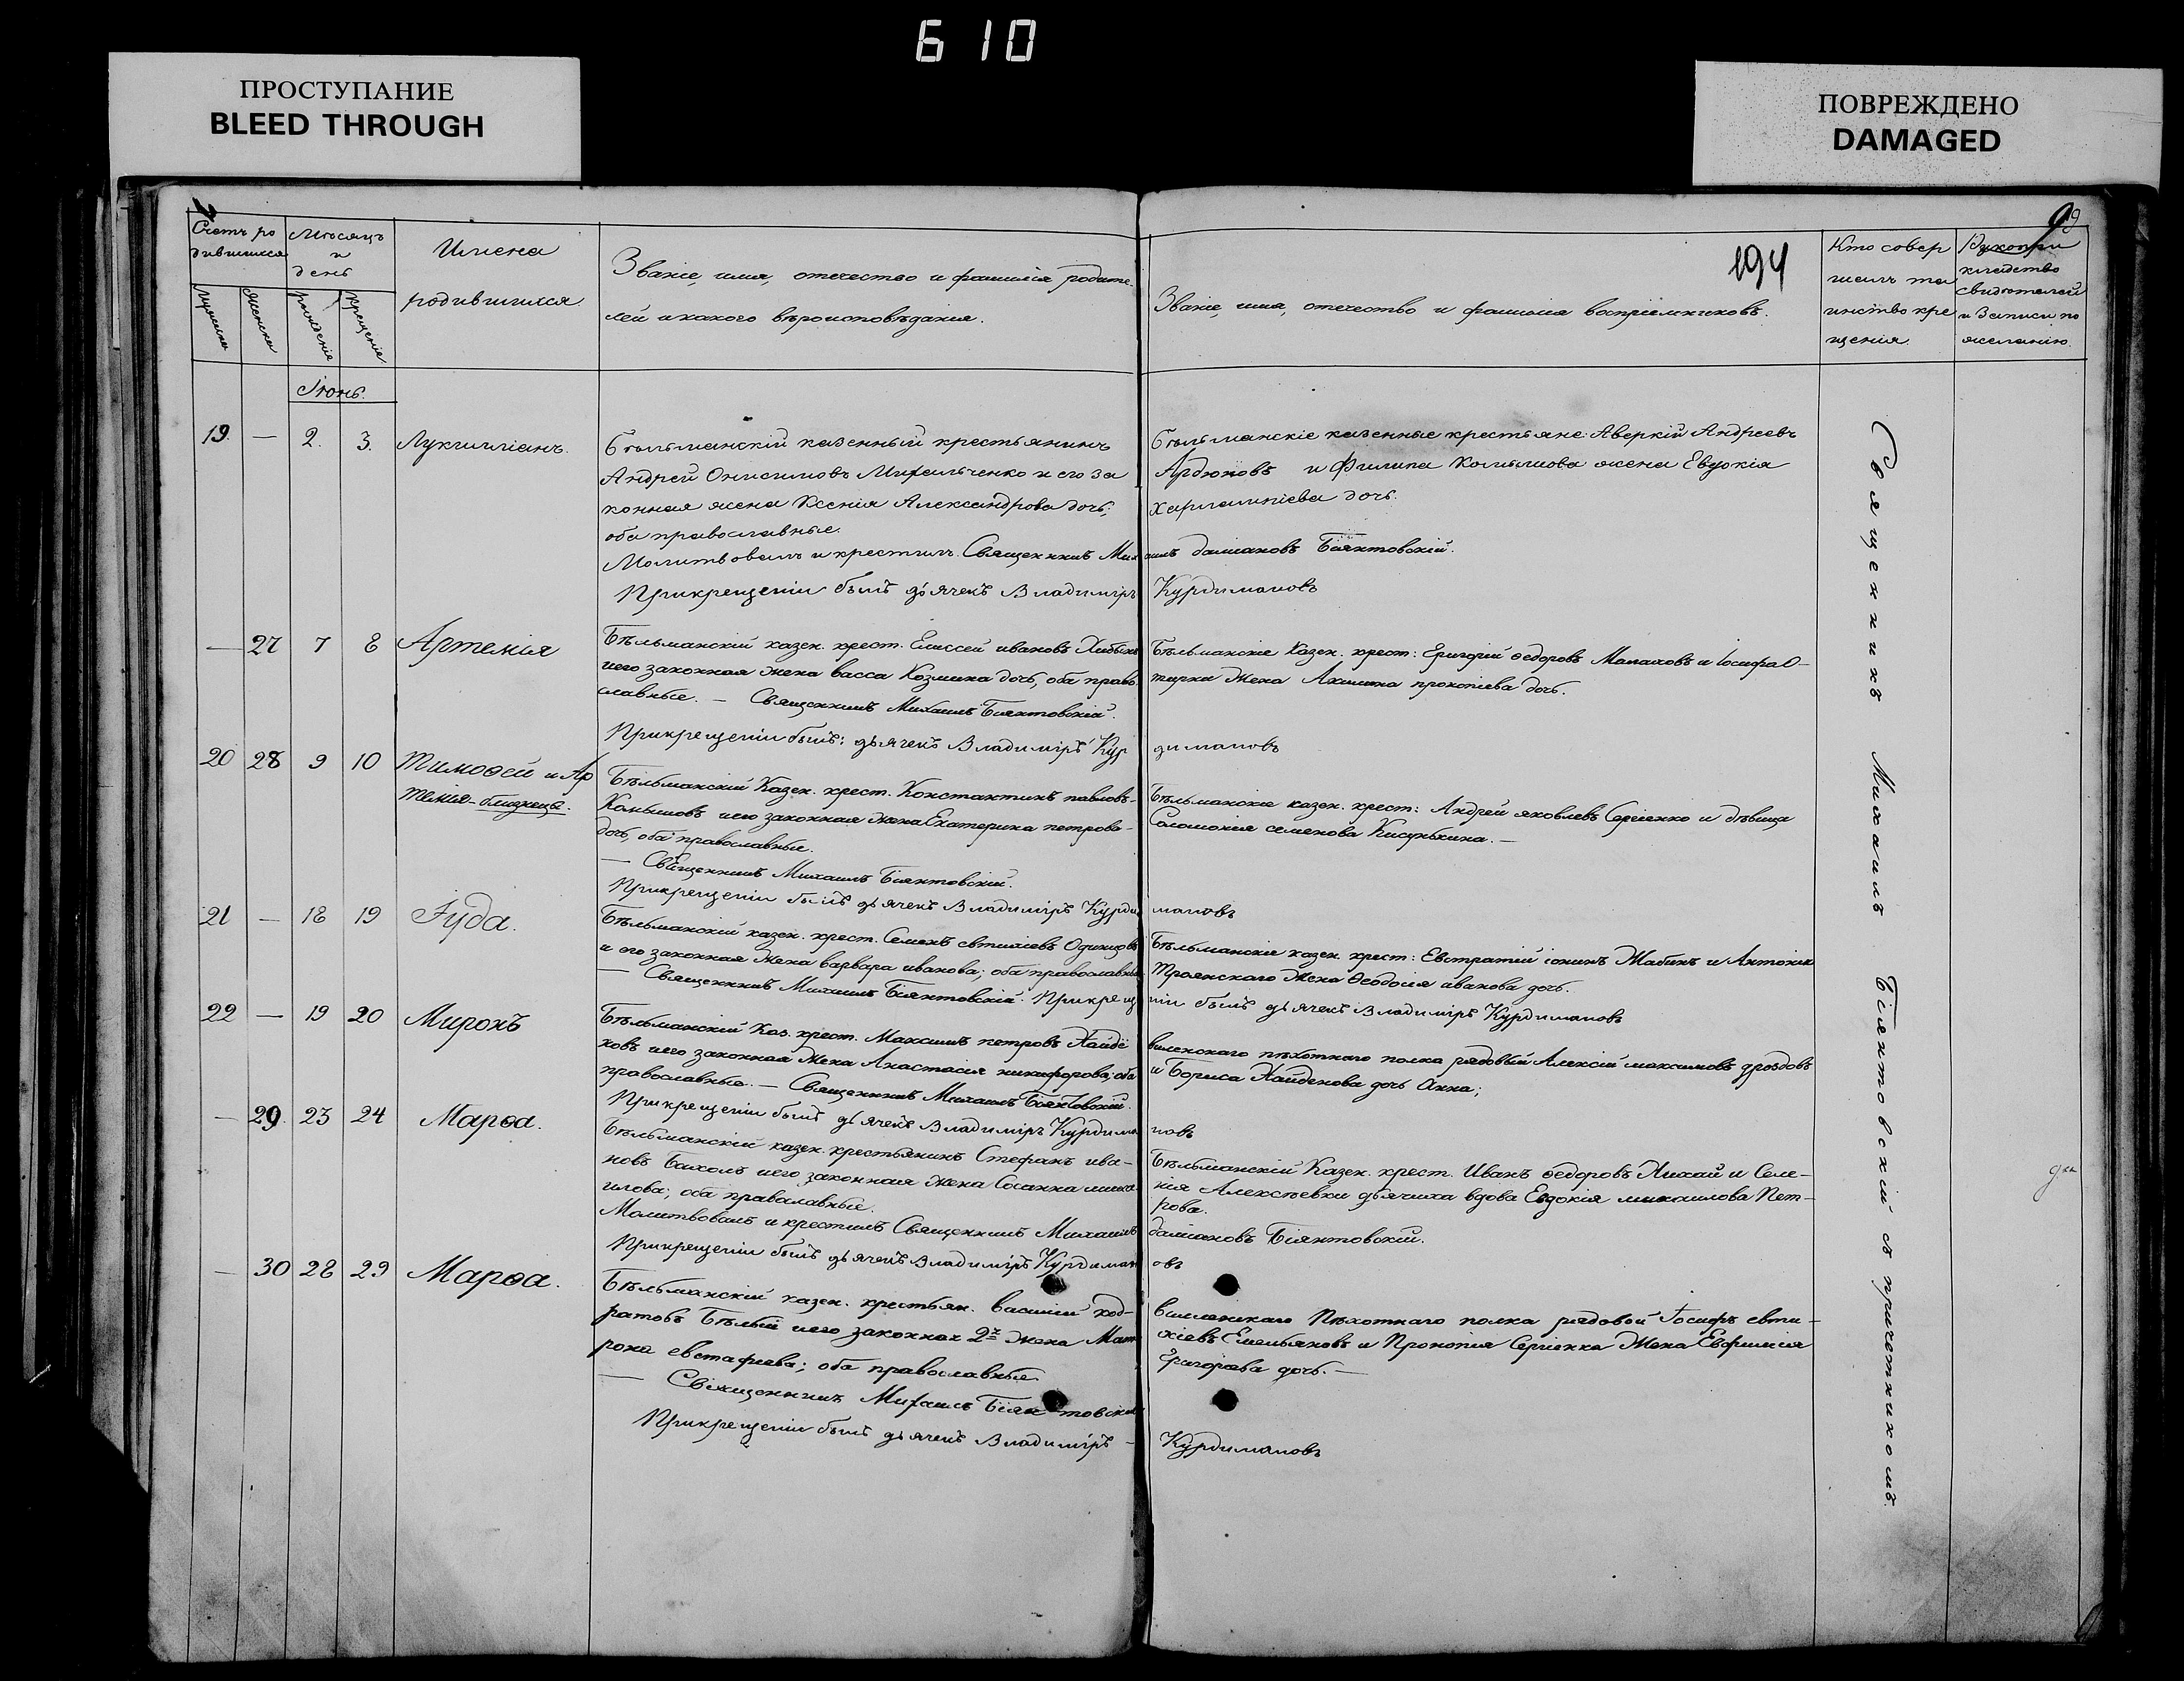 610
ПРОСТУПАНИЕ
BLEED THROUGH
ПОВРЕЖДЕНО
DAMAGED
194
Счетъ ро
дившихся
Мѣсяцъ
и
день
Имена
родившихся
Званіе, имя, отечество и фамилія родите
лей и какого вѣроисповѣданія.
Званіе, имя, отечество и фамилія воспріемниковъ.
Кто совер
шилъ та
инство кре
щенія.
Рукопри
кладство
свидѣтелей
и записи по
желанію.
мужеска
женска
рожденіе
крещеніе
Іюнь.
19. — 2. 3. Лукилліанъ.
Бѣльманскій казенный крестьянинъ
Андрей Онисимовъ Михельченко и его за
конная жена Ксенія Александрова дочь,
оба православные.
Молитвовалъ и крестилъ Священникъ Михаилъ Даміановъ Біянтовскій.
При крещеніи былъ дьячекъ Владиміръ Курдимановъ
Бѣльманскіе казенные крестьяне: Аверкій Андреевъ
Ардюковъ и Филипа жена Евдокія
Харлампіева дочь.
— 27 7 8 Артемія
Бѣльманскій казен. крест. Елиссей ивановъ
и его законная жена васса Козмина дочь, оба право
славные. — Священникъ Михаилъ Біянтовскій.
При крещеніи былъ: дьячекъ Владиміръ Курдимановъ
Бѣльманскіе Казен. крест: Григорій Ѳедоровъ Малаховъ и Іосифа
жена Акилина прокопіева дочь.
20 28 9 10 Тимоѳей и Ар
темія - близнецы.
Бѣльманскій Казен. крест. Константинъ павловъ
и его законная жена Екатерина петрова
дочь, оба православные.
— Священникъ Михаилъ Біянтовскій.
При крещеніи былъ дьячекъ Владиміръ Курдимановъ
Бѣльманскіе казен. крест: Андрей яковлевъ Сергіенко и дѣвица
Соломонія семенова Кисунькина. —
21 — 18 19 Іуда.
Бѣльманскій казен. крест. Семенъ евтихіевъ Одинцовъ
и его законная жена варвара иванова; оба православные
— Священникъ Михаилъ Біянтовскій. При крещеніи былъ дьячекъ Владиміръ Курдимановъ
Бѣльманскіе казен. крест: Евстратій іонинъ Жабинъ и Антонія
Троянскаго жена Ѳеодосія иванова дочь.
22 — 19 20 Миронъ
Бѣльманскій Каз. крест. Максимъ петровъ Найдё
новъ и его законная жена Анастасія никифорова; оба
православные. — Священникъ Михаилъ Біянтовскій.
При крещеніи былъ дьячекъ Владиміръ Курдимановъ
виленскаго пѣхотнаго полка рядовый Алексій максимовъ дроздовъ
и Бориса Найденова дочь Анна;
— 29. 23 24 Марѳа.
Бѣльманскій казен. крестьянинъ Стефанъ ива-
новъ и его законная жена Сосанна миха
илова; оба православные.
Молитвовалъ и крестилъ Священникъ Михаилъ Даміановъ Біянтовскій.
При крещеніи былъ дьячекъ Владиміръ Курдимановъ
Бѣльманскій Казен. крест. Иванъ Ѳедоровъ и Селе-
нія Алексѣевки дьячиха вдова Евдокія михаилова Пет-
рова.
— 30 28 29 Марѳа.
Бѣльманскій казен. крестьян. василій код-
ратовъ Бѣлый и его законная 2я жена Мат
рона евстафіева; оба православные
— Священникъ Михаилъ Біянтовскій
При крещеніи былъ дьячекъ Владиміръ — Курдимановъ
виленскаго Пѣхотнаго полка рядовой Іосифъ евти-
хіевъ Емельяновъ и Прокопія Сергіенка жена Евфимія
Григорьева дочь. —
Священникъ Михаилъ Біянтовскій съ причетникомъ.